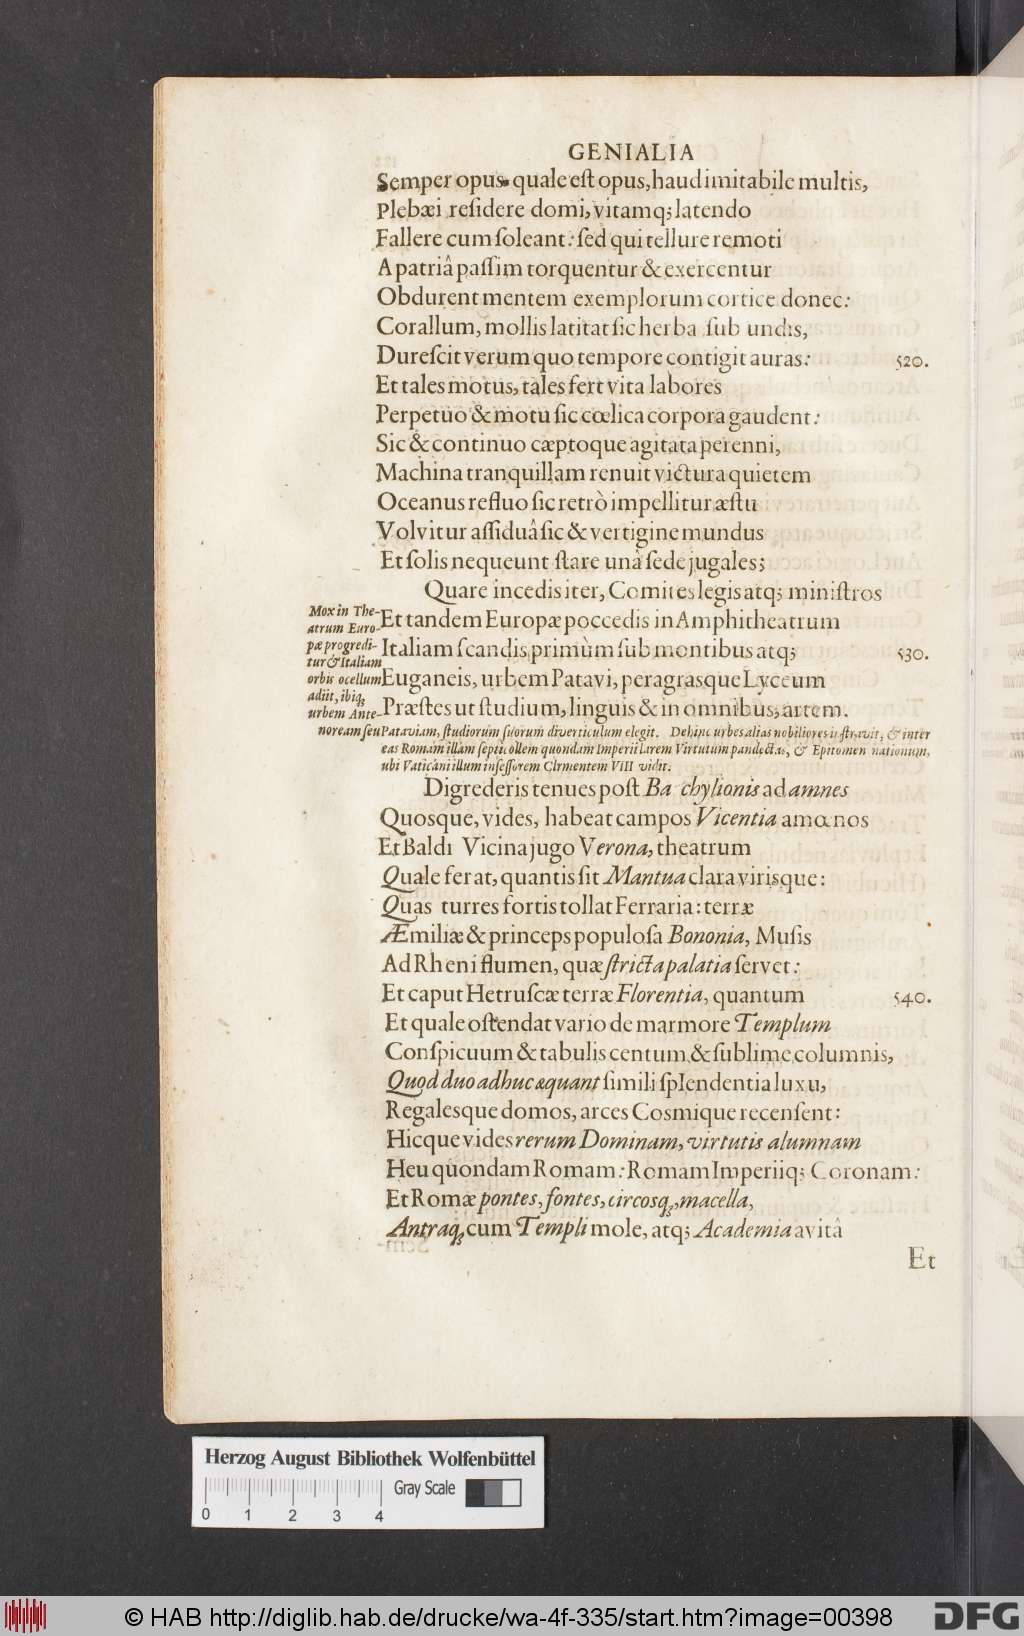 GENIALIA
Semper opus quale est opus, haud imitabile multis,
Plebæi residere domi, vitamq; latendo
Fallere cum soleant: sed qui tellure remoti
A patriâ passim torquentur & exercentur
Obdurent mentem exemplorum cortice donec:
Corallum, mollis latitat sic herba sub undis,
Durescit verum quo tempore contigit auras: 520.
Et tales motus, tales fert vita labores
Perpetuo & motu sic cœlica corpora gaudent:
Sic & continuo cæptoque agitata perenni,
Machina tranquillam renuit victura quietem
Oceanus refluo sic retrò impellitur æstu
Volvitur assiduâ sic & vertigine mundus
Et solis nequeunt stare unâ sede jugales;
Quare incedis iter, Comites legis atq; ministros
Et tandem Europæ poccedis in Amphitheatrum
Italiam scandis primùm sub montibus atq; 530.
Euganeis, urbem Patavi, peragrasque Lyceum
Præstes ut studium, linguis & in omnibus, artem.
Mox in The-
atrum Euro-
pæ progredi-
tur & Italiam
orbis ocellum
adiit, ibiq;
urbem Ante-
noream seu Pataviam, studiorum suorum diverticulum elegit. Dehinc urbes alias nobiliores illustravit, & inter
eas Romam illam septicollem quondam Imperii Larem Virtutum pandectas, & Epitomen nationum,
ubi Vaticani illum insessorem Clrmentem VIII vidit.
Digrederis tenues post Ba chylionis ad amnes
Quosque, vides, habeat campos Vicentia amœnos
Et Baldi Vicina jugo Verona, theatrum
Quale ferat, quantis sit Mantua clara virisque:
Quas turres fortis tollat Ferraria: terræ
Æmiliæ & princeps populosa Bononia, Musis
Ad Rheni flumen, quæ stricta palatia servet:
Et caput Hetruscæ terræ Florentia, quantum 540.
Et quale ostendat vario de marmore Templum
Conspicuum & tabulis centum & sublime columnis,
Quod duo adhuc æquant simili splendentia luxu,
Regalesque domos, arces Cosmique recensent:
Hicque vides rerum Dominam, virtutis alumnam
Heu quondam Romam: Romam Imperiiq; Coronam:
Et Romæ pontes, fontes, circosq;, macella,
Antraq; cum Templi mole, atq; Academia avitâ
Et
Herzog August Bibliothek Wolfenbüttel
Gray Scale
0 1 2 3 4
© HAB http://diglib.hab.de/drucke/wa-4f-335/start.htm?image=00398
DFG